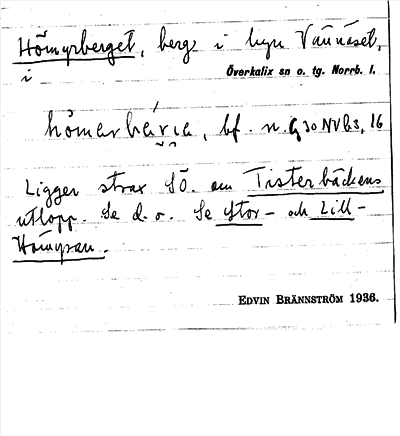 Hömyrberget, berg i byn Vännäset,
i Överkalix sn o. tg. Norrb. l.
bf.
Ligger strax SÖ. om Tisterbäckens
utlopp. Se d. o. Se Stor- och Lill-
Hömyran.
EDVIN BRÄNNSTRÖM 1936.